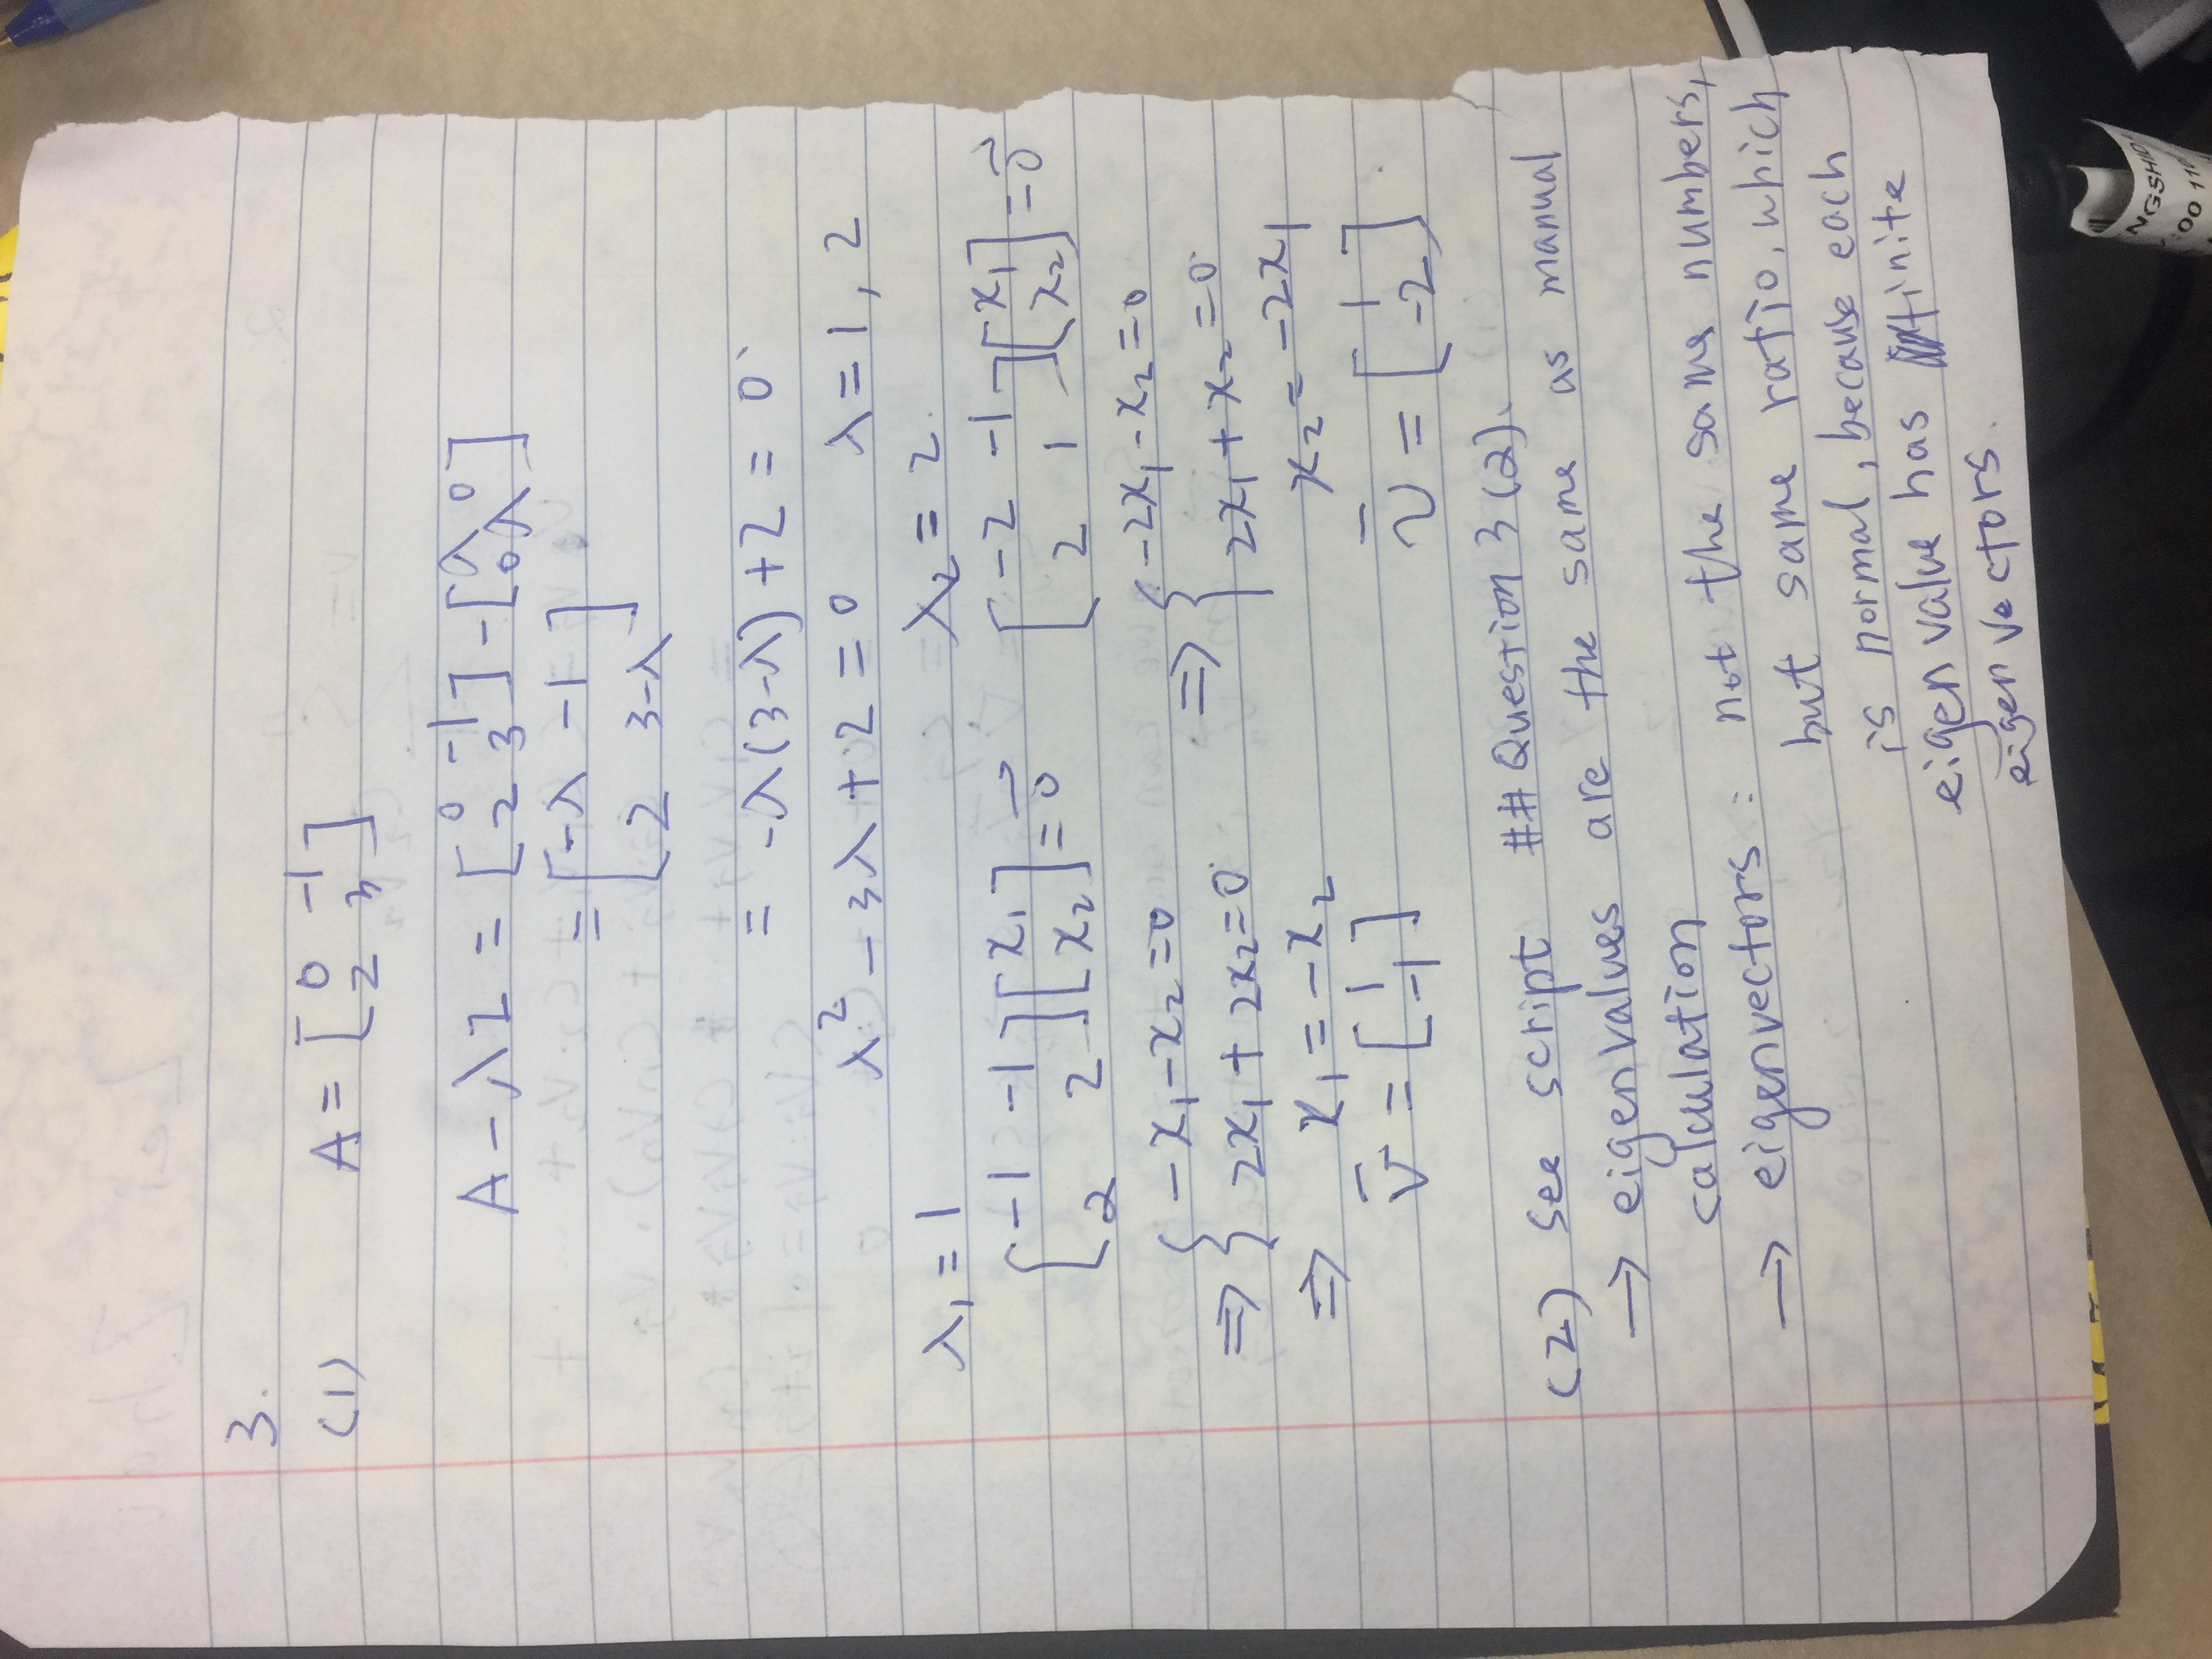 3.
(1) A = [0 -1; 2 3]
A - λI = [0 -1; 2 3] - [λ 0; 0 λ]
= [-λ -1; 2 3-λ]
= -λ(3-λ) + 2 = 0
λ² - 3λ + 2 = 0 λ = 1, 2
λ₁ = 1 λ₂ = 2.
[-1 -1; 2 2][x₁; x₂] = 0⃗ [-2 -1; 2 1][x₁; x₂] = 0⃗
⇒ { -x₁ - x₂ = 0 ⇒ { -2x₁ - x₂ = 0
2x₁ + 2x₂ = 0 2x₁ + x₂ = 0
⇒ x₁ = -x₂ x₂ = -2x₁
v̄ = [1; -1] v̄ = [1; -2]
(2) See script ## Question 3 (2).
→ eigenvalues are the same as manual
calculation
→ eigenvectors : not the same numbers,
but same ratio, which
is normal, because each
eigen value has infinite
eigen vectors.
NGSHID
:00 110